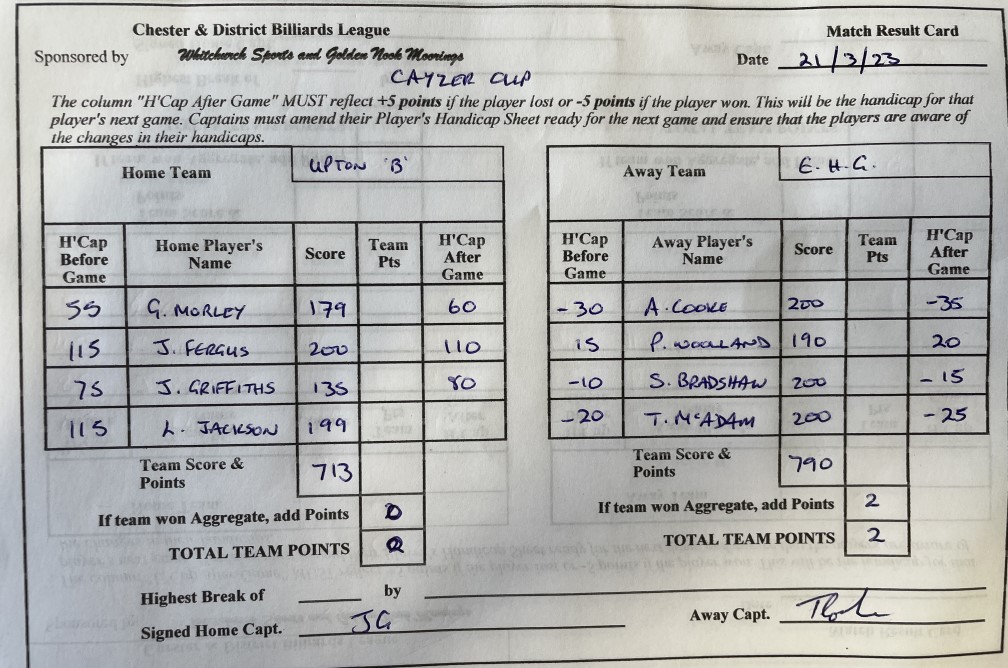 Chester & District Billiards League
Match Result Card
Sponsored by Whitchurch Sports and Golden Nook Moorings
Date 21/3/23
CAYZER CUP
The column "H'Cap After Game" MUST reflect +5 points if the player lost or -5 points if the player won. This will be the handicap for that
player's next game. Captains must amend their Player's Handicap Sheet ready for the next game and ensure that the players are aware of
the changes in their handicaps.
Home Team UPTON 'B'
H'Cap Before Game Home Player's Name Score Team Pts H'Cap After Game
55 G. MORLEY 179 60
115 J. FERGUS 200 110
75 J. GRIFFITHS 135 80
115 L. JACKSON 199
Team Score & Points 713
If team won Aggregate, add Points 0
TOTAL TEAM POINTS 0
Away Team E.H.G.
H'Cap Before Game Away Player's Name Score Team Pts H'Cap After Game
-30 A. COOKE 200 -35
15 P. WOOLLAND 190 20
-10 S. BRADSHAW 200 -15
-20 T. McADAM 200 -25
Team Score & Points 790
If team won Aggregate, add Points 2
TOTAL TEAM POINTS 2
Highest Break of by
Signed Home Capt. JG
Away Capt.